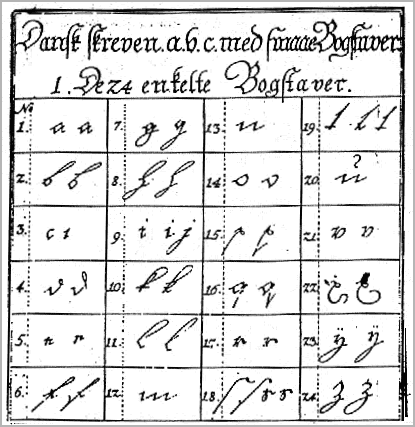 Dansk skreven. a. b. c. med smaae Bogstaver.
1. De 24 enkelte Bogstaver.
№
1. a a 7. g g 13. n 19. t t t
2. b b 8. h h 14. o o 20. u
3. c c 9. i i j 15. p p 21. v v
4. d d 10. k k 16. q q 22. x x
5. e e 11. l l 17. r r 23. ÿ ÿ
6. f f 12. m 18. ſ ſ s s 24. z z